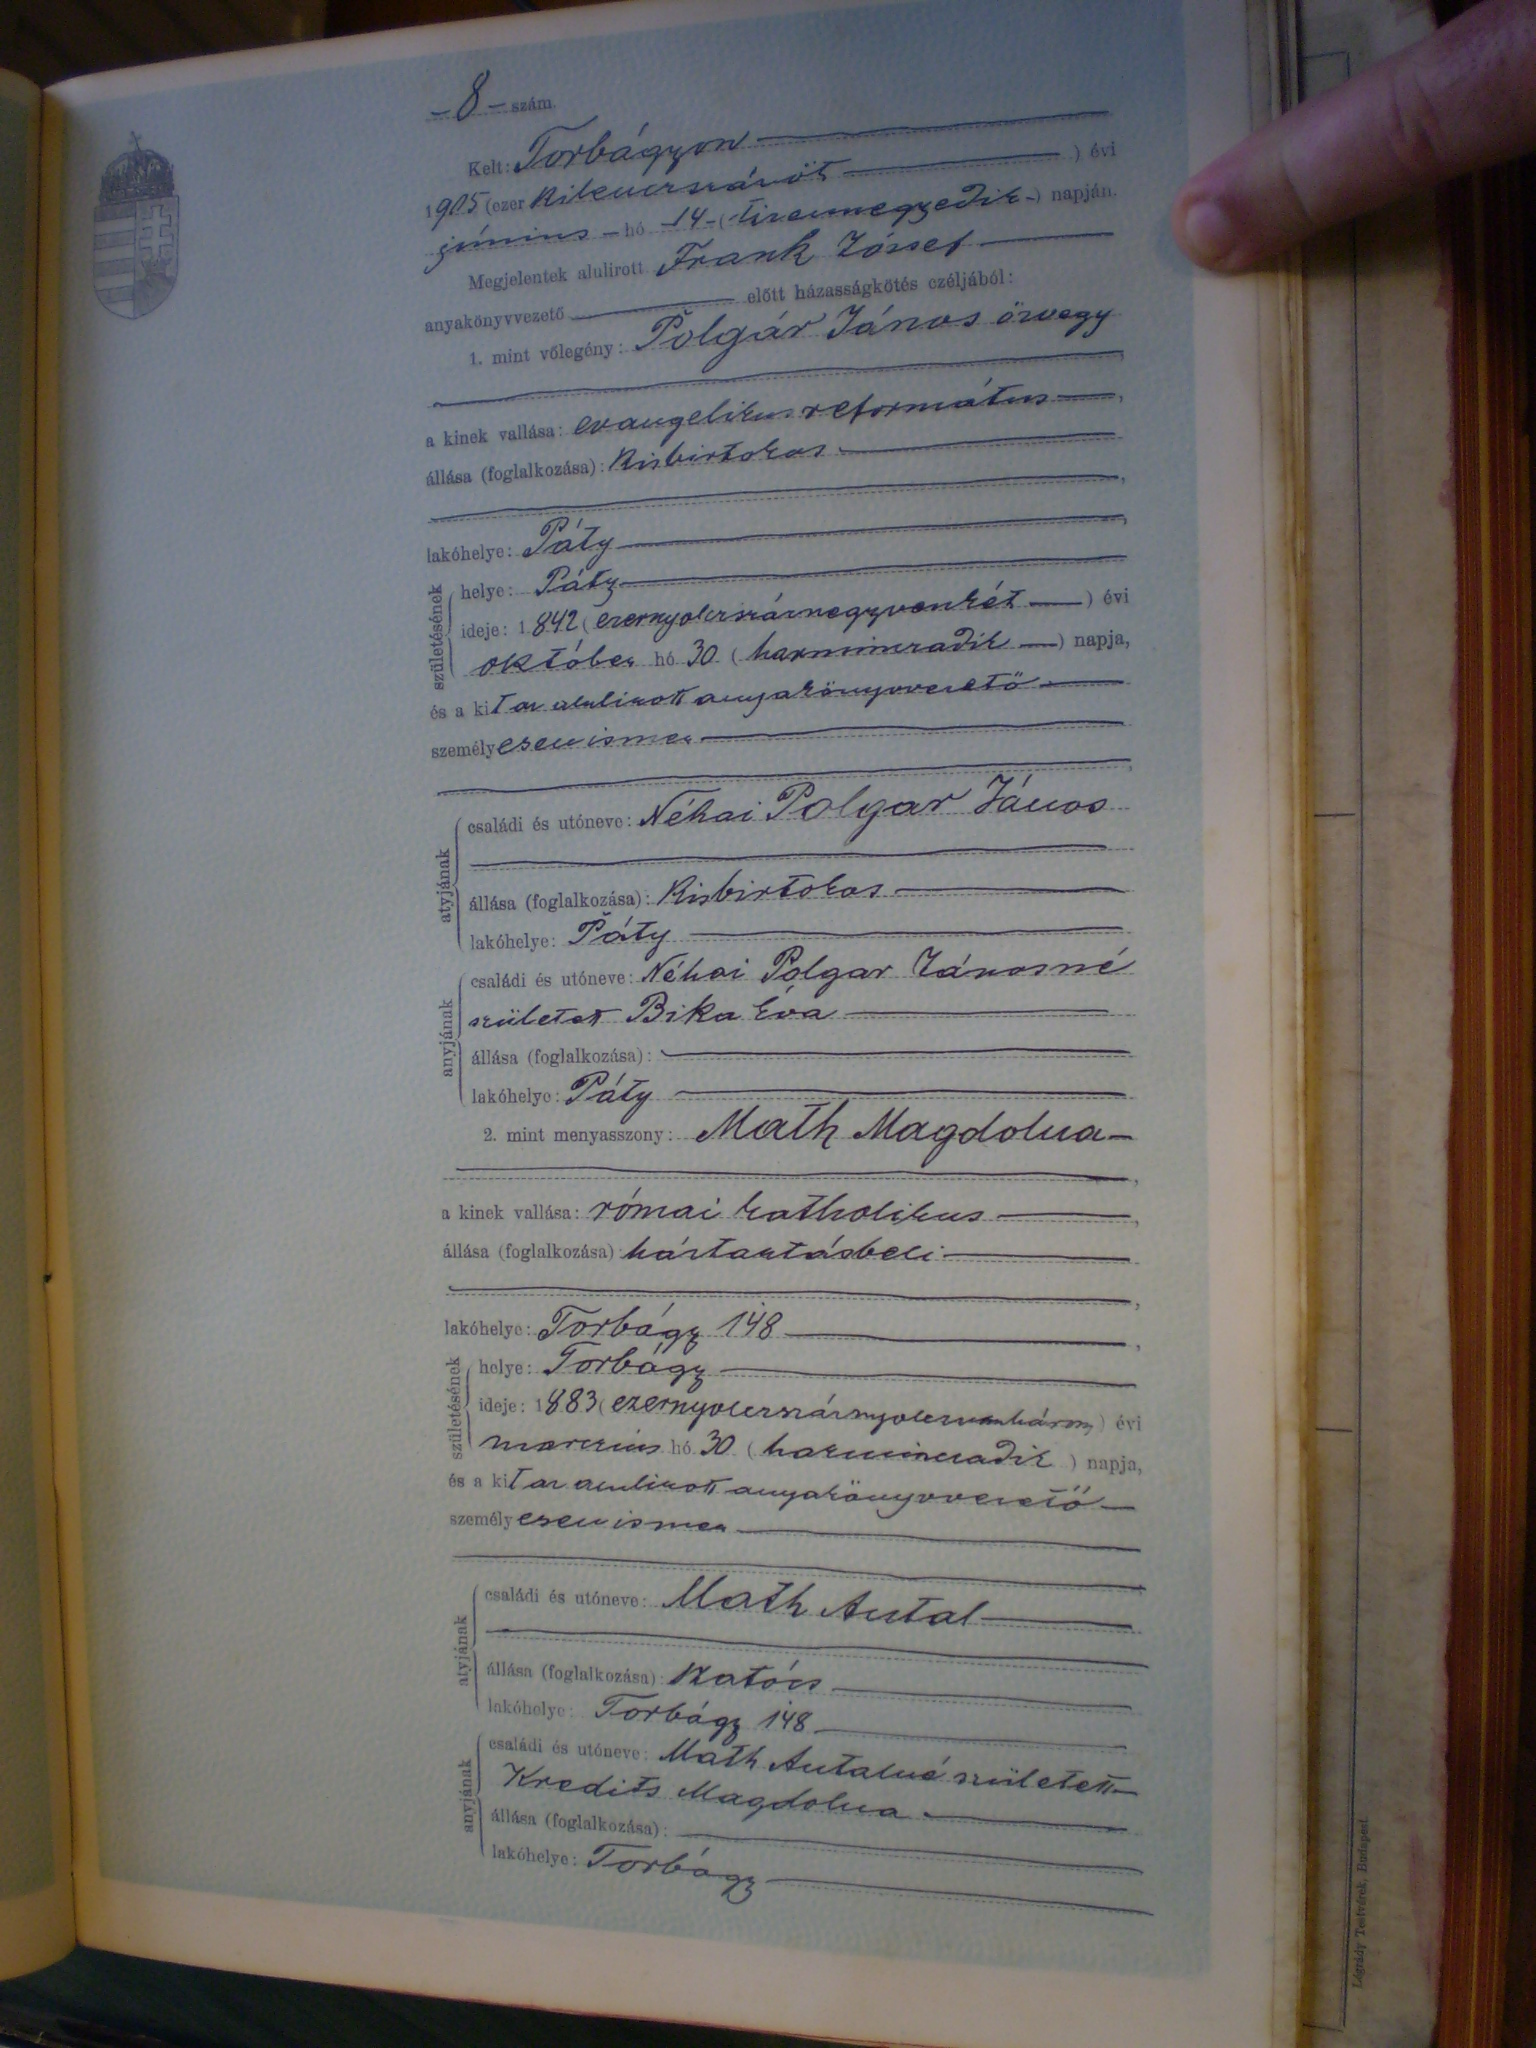 - 8 - szám.
Kelt: Torbágyon
1905 (ezer kilenczszázöt) évi
június - hó - 14 - (tizennegyedik -) napján.
Megjelentek alulirott Frank József
anyakönyvvezető előtt házasságkötés czéljából:
1. mint vőlegény: Polgár János özvegy
a kinek vallása: evangelikus református,
állása (foglalkozása): Kisbirtokos
lakóhelye: Páty
születésének
helye: Páty
ideje: 1842 (ezernyolczszáznegyvenkét) évi
október hó 30 (harminczadik) napja,
és a kit az alulirott anyakönyvvezető
személyesen ismer
atyjának
családi és utóneve: Néhai Polgar János
állása (foglalkozása): Kisbirtokos
lakóhelye: Páty
anyjának
családi és utóneve: Néhai Polgar Jánosné
született Bika Éva
állása (foglalkozása):
lakóhelye: Páty
2. mint menyasszony: Math Magdolna -
a kinek vallása: római katholikus,
állása (foglalkozása): háztartásbeli
lakóhelye: Torbágy 148,
születésének
helye: Torbágy
ideje: 1883 (ezernyolczszáznyolczvanhárom) évi
marczius hó 30 (harminczadik) napja,
és a kit az alulirott anyakönyvvezető -
személyesen ismer
atyjának
családi és utóneve: Math Antal
állása (foglalkozása): Katócs
lakóhelye: Torbágy 148
anyjának
családi és utóneve: Math Antalné született
Kredits Magdolna
állása (foglalkozása):
lakóhelye: Torbágy
Légrády Testvérek, Budapest.